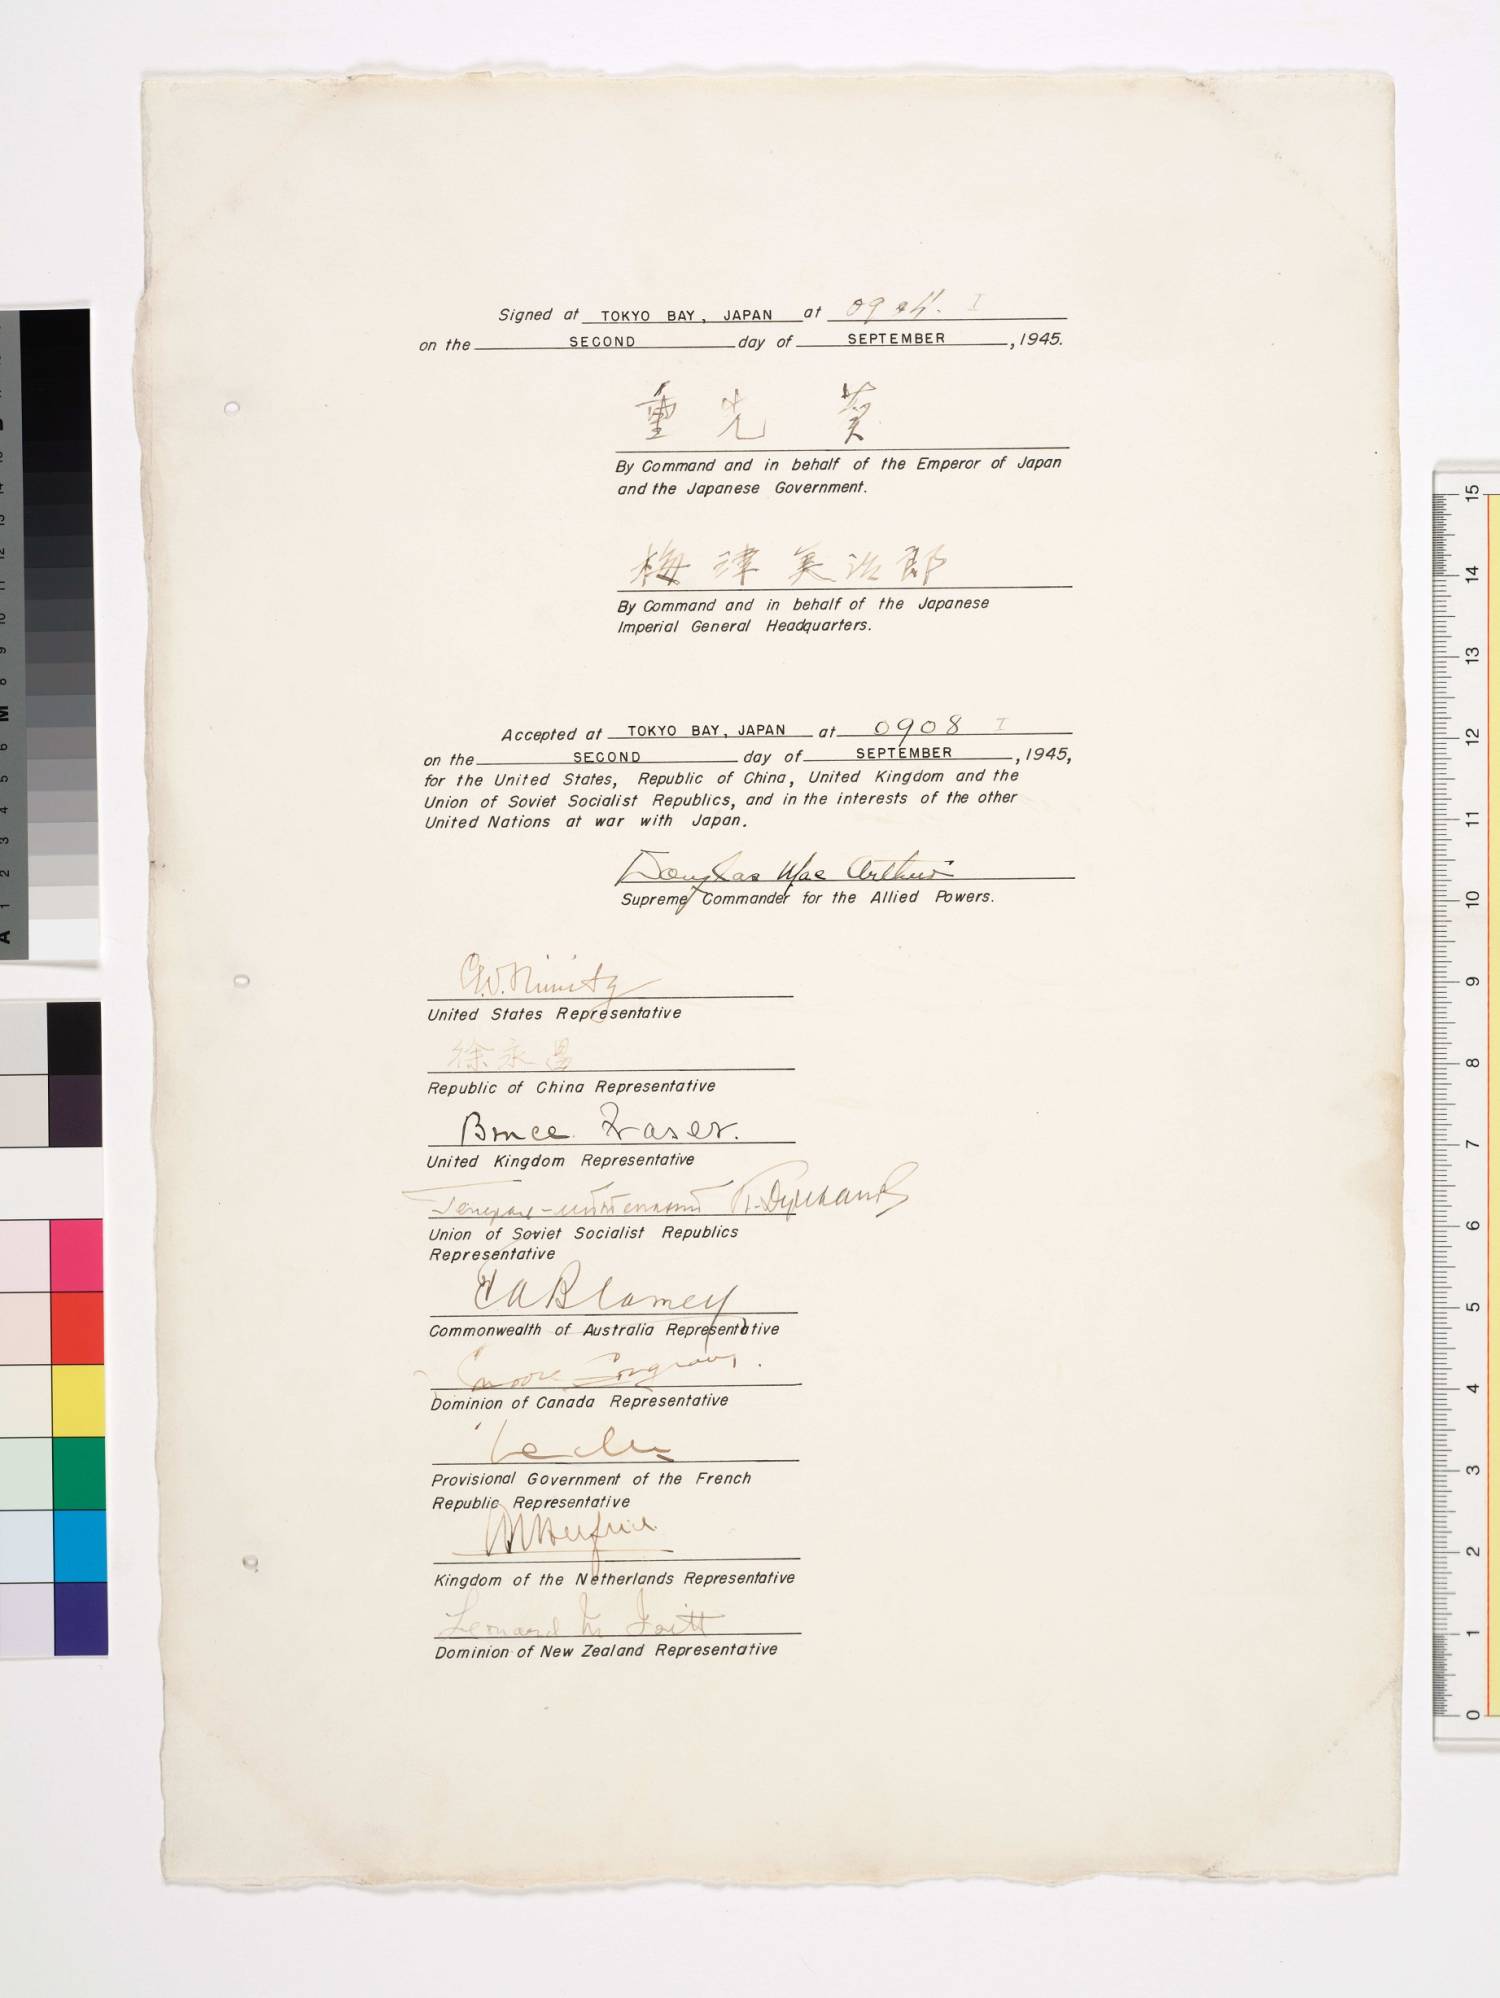 Signed at TOKYO BAY, JAPAN at 0904 I
on the SECOND day of SEPTEMBER, 1945.
重光 葵
By Command and in behalf of the Emperor of Japan
and the Japanese Government.
梅津美治郎
By Command and in behalf of the Japanese
Imperial General Headquarters.
Accepted at TOKYO BAY, JAPAN at 0908 I
on the SECOND day of SEPTEMBER, 1945,
for the United States, Republic of China, United Kingdom and the
Union of Soviet Socialist Republics, and in the interests of the other
United Nations at war with Japan.
Douglas MacArthur
Supreme Commander for the Allied Powers.
C.W. Nimitz
United States Representative
徐永昌
Republic of China Representative
Bruce Fraser.
United Kingdom Representative
Генерал-лейтенант К. Деревянко
Union of Soviet Socialist Republics
Representative
T A Blamey
Commonwealth of Australia Representative
Moore Cosgrave.
Dominion of Canada Representative
Leclerc
Provisional Government of the French
Republic Representative
Helfrich
Kingdom of the Netherlands Representative
Leonard M Isitt
Dominion of New Zealand Representative
15
14
13
12
11
10
9
8
7
6
5
4
3
2
1
0
M
8
9
10
11
12
13
14
A
1
2
3
4
5
6